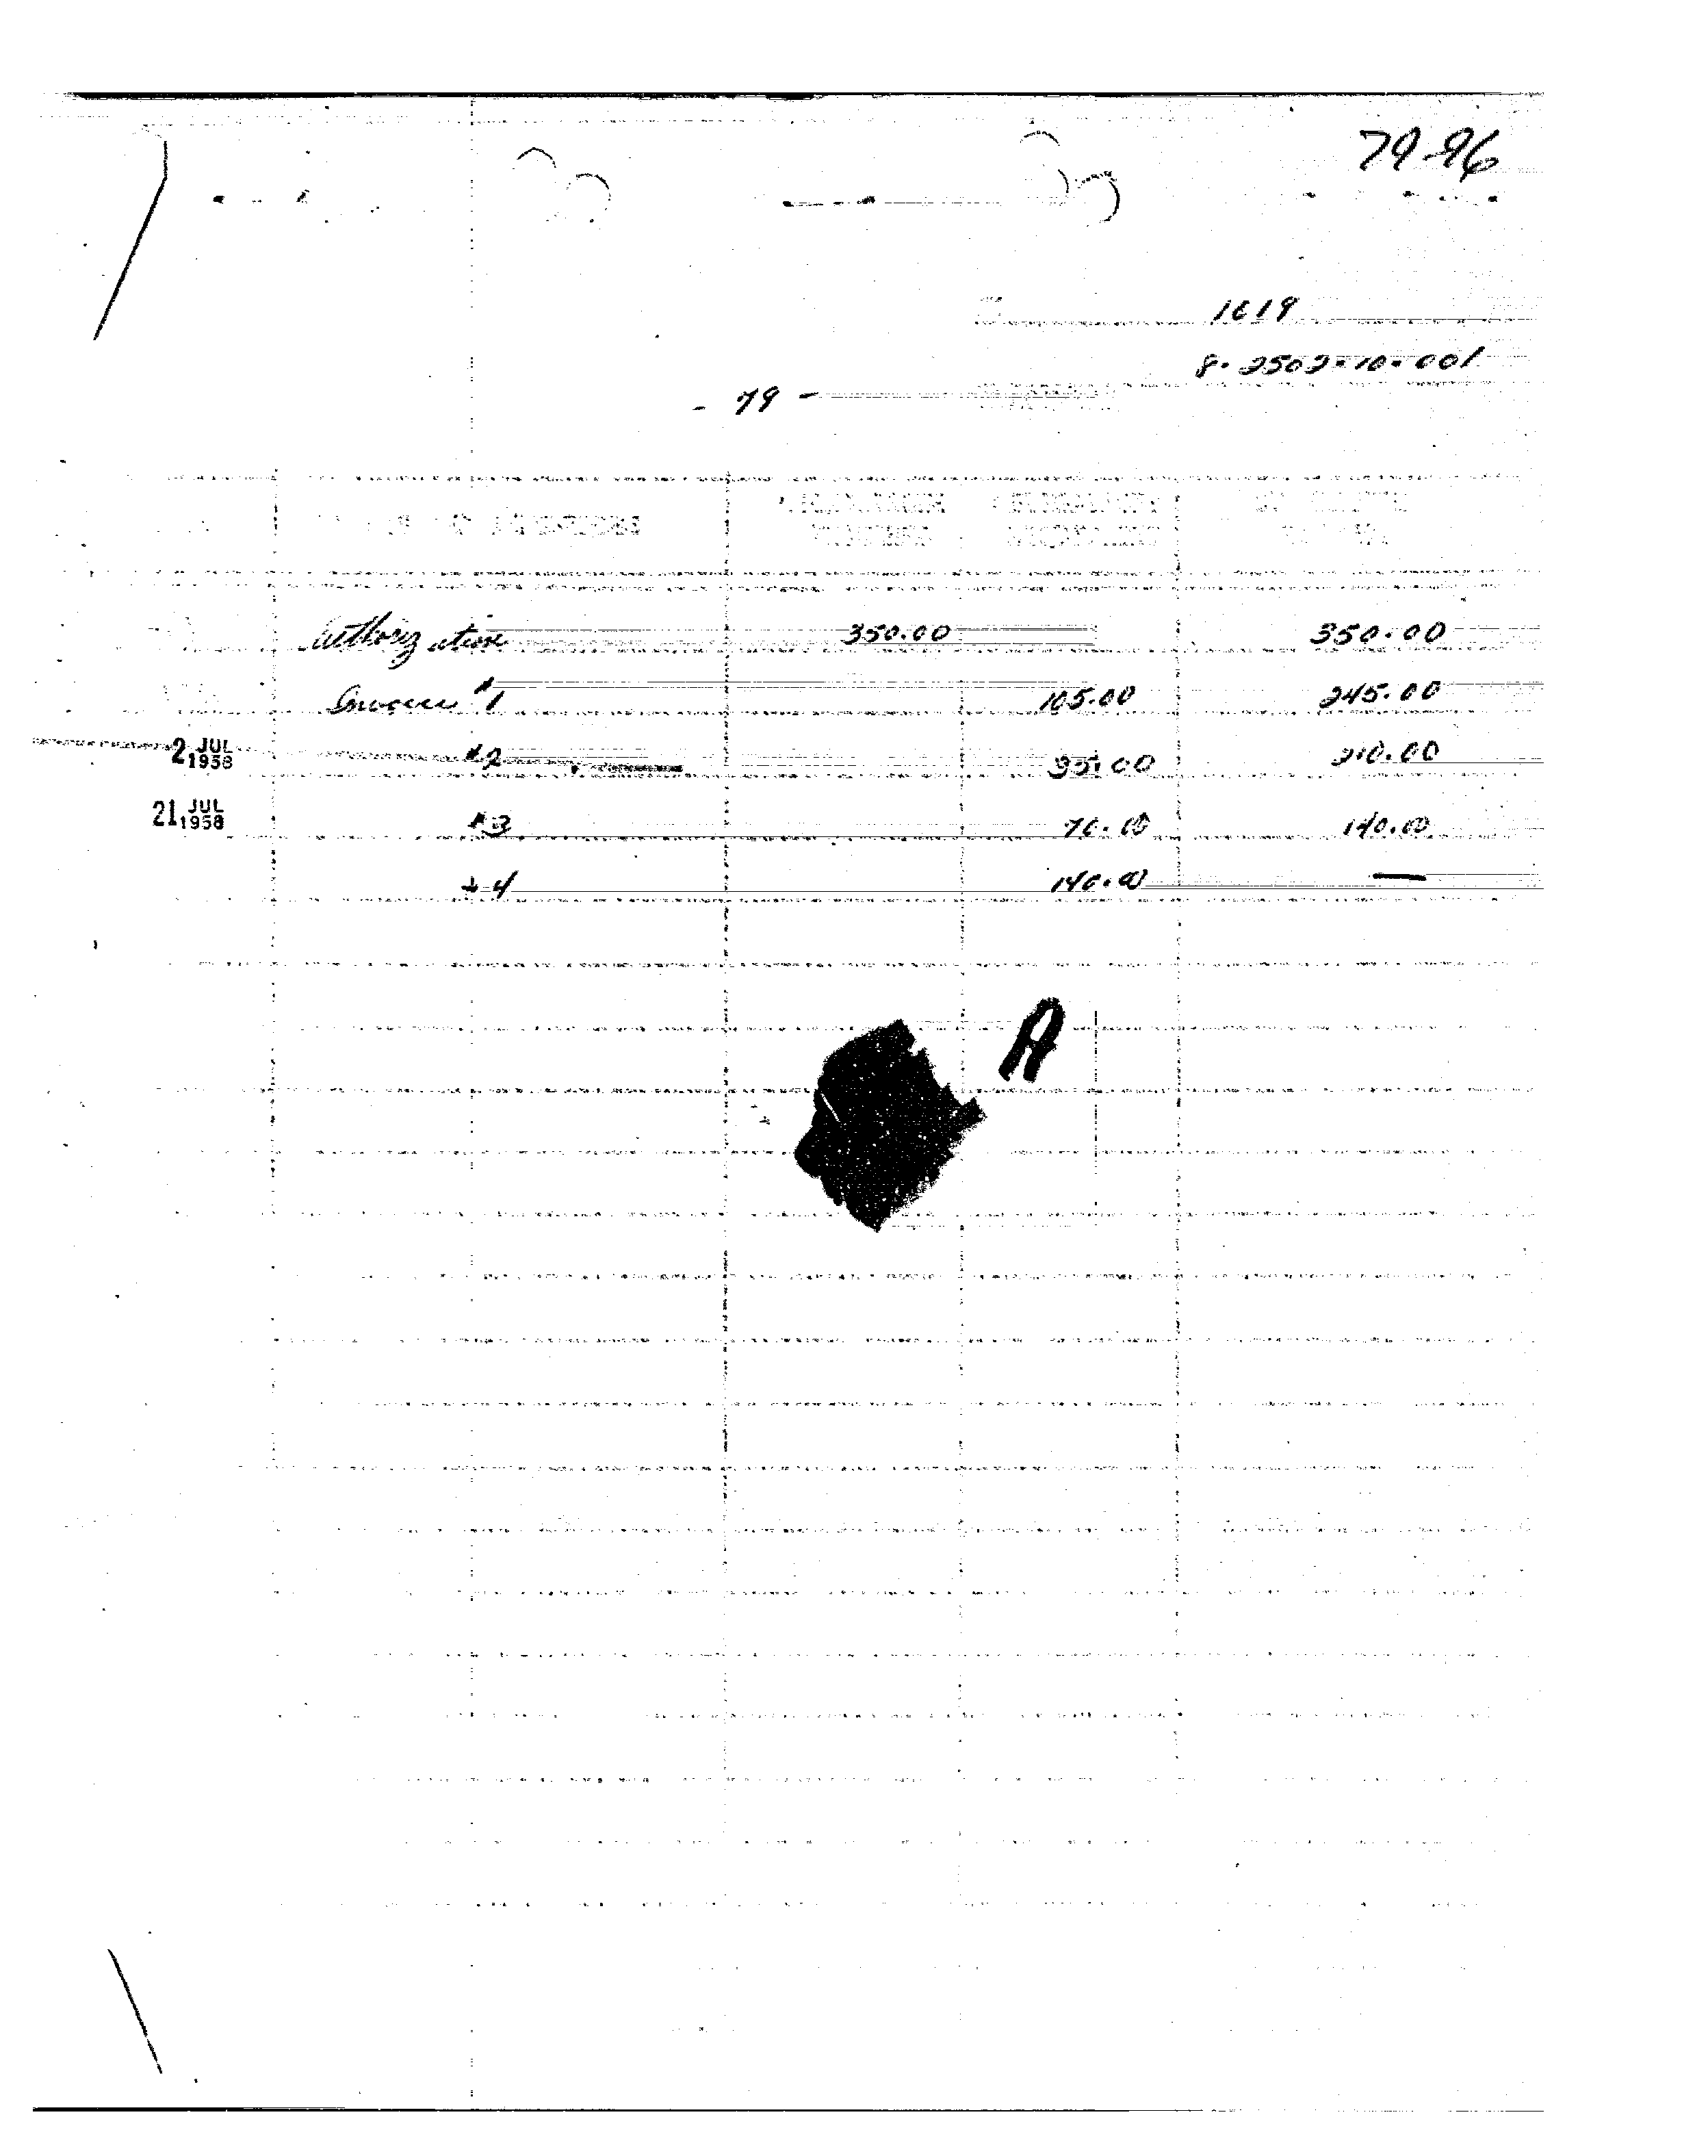 79-96
1619
8-2502-10-001
- 79 -
Authorization 350.00 350.00
Invoice #1 105.00 245.00
2 JUL 1958 #2 35.00 210.00
21 JUL 1958 #3 70.00 140.00
#4 140.00 —
A